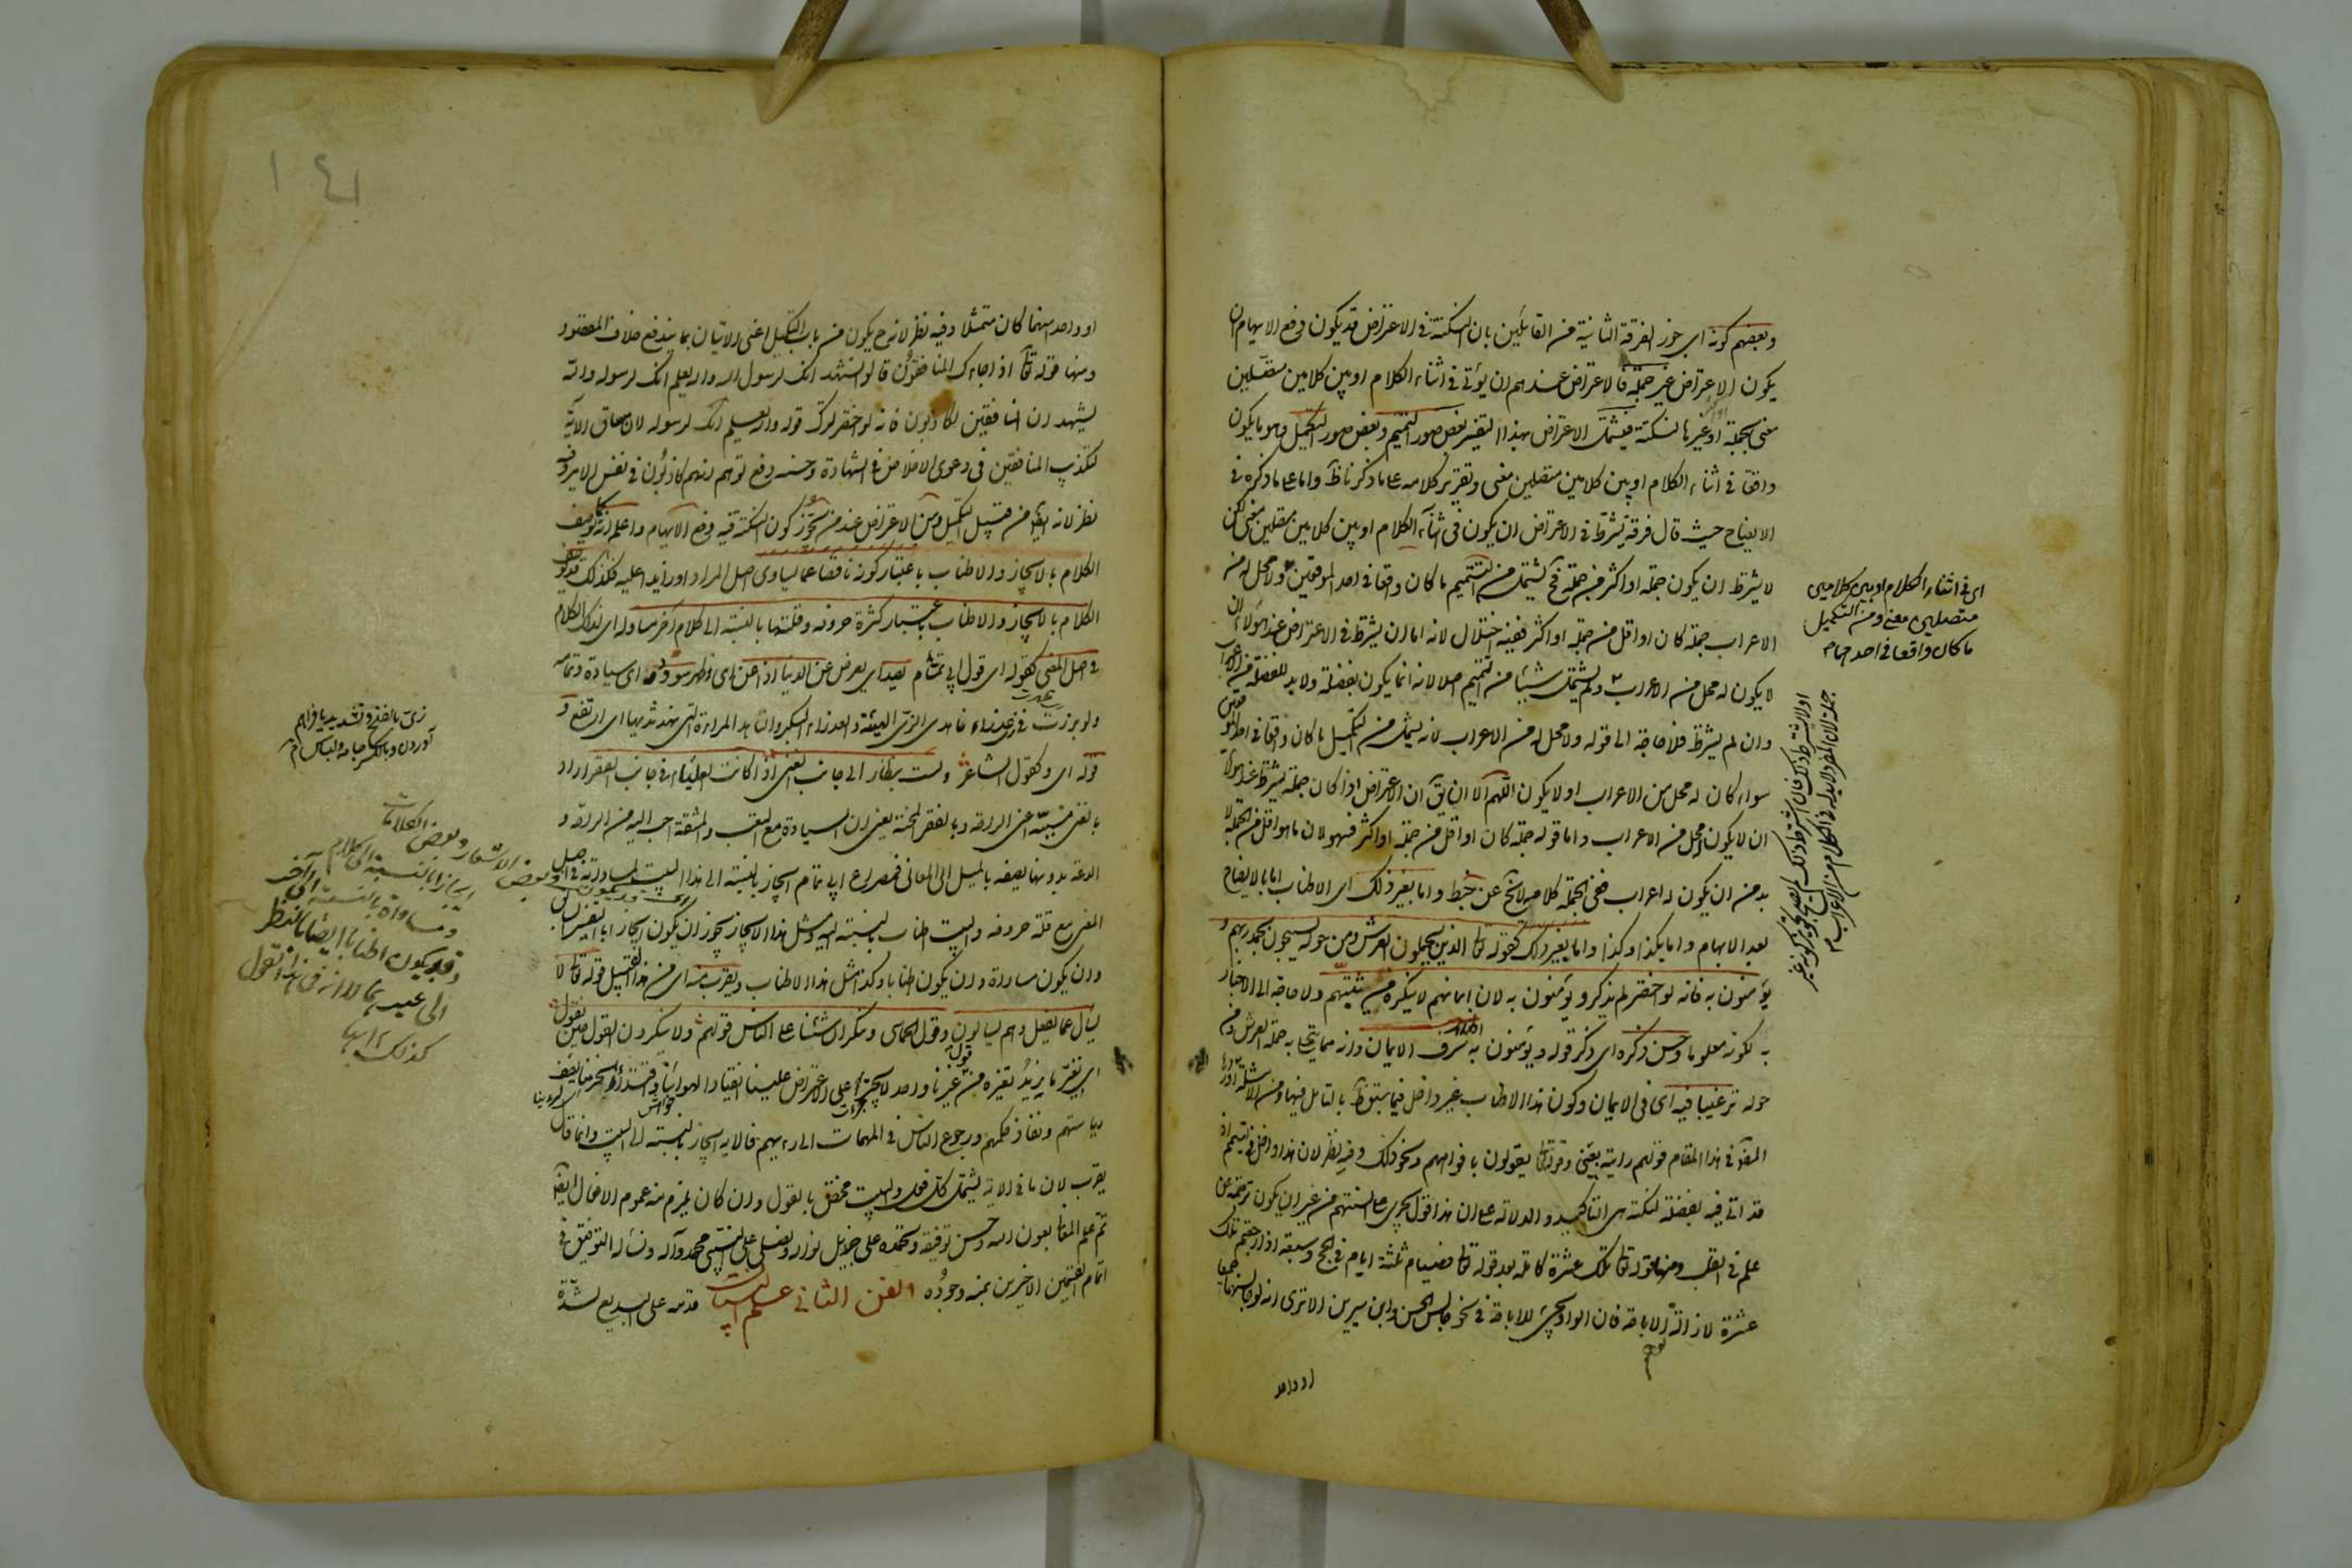 وبعضهم كونه اى جوز الفرقة الثانية من القائلين بان النكتة فى الاعتراض قد يكون دفع الايهام ان
يكون الاعتراض غير جملة فالاعتراض عندهم ان يؤتى فى اثناء الكلام او بين كلامين متصلين
معنى بجملة او غيرها لنكتة فيشمل الاعتراض بهذا التفسير بعض صور التتميم وبعض صور التكميل وهو ما يكون
واقعا فى اثناء الكلام او بين كلامين متصلين معنى وتقرير كلامه على ما ذكرنا ظ واما على ما ذكره فى
الايضاح حيث قال فرقة يشترط فى الاعتراض ان يكون فى اثناء الكلام او بين كلامين متصلين معنى لكن
لا يشترط ان يكون جملة او اكثر من جملة فح يشتمل من التتميم ما كان واقعا فى احد الموقعين ولا محل له من
الاعراب جملة كان او اقل من جملة او اكثر ففيه اختلال لانه اما ان يشترط فى الاعتراض عند هؤلاء ان
لا يكون له محل من الاعراب ولم يشتمل شيئا من التتميم اصلا لانه انما يكون بفضلة ولا بد للفضلة من الاعراب
وان لم يشترط فلا حاجة الى قوله ولا محل له من الاعراب لانه يشمل من التكميل ما كان واقعا فى احد الموقعين
سواء كان له محل من الاعراب او لا يكون اللهم الا ان يق ان الاعتراض اذا كان جملة يشترط عند هؤلاء
ان لا يكون له محل من الاعراب واما قوله جملة كان او اقل من جملة او اكثر فسهو لان ما هو اقل من الجملة لا
بد من ان يكون له اعراب ففى الجملة كلامه لا يخ عن خبط واما بغير ذلك اى الاطناب اما بالايضاح
بعد الابهام واما بكذا وكذا واما بغير ذلك كقوله تعا الذين يحملون العرش ومن حوله يسبحون بحمد ربهم و
يؤمنون به فانه لو اختصر لم يذكر ويؤمنون به لان ايمانهم لا ينكره من يثبتهم ولا حاجة الى الاخبار
به لكونه معلوما وحسن ذكره اى ذكر قوله ويؤمنون به اظهار شرف الايمان وانه مما يتحلى به حملة العرش ومن
حوله ترغيبا فيه اى فى الايمان وكون هذا الاطناب غير داخل فيما سبق ظ بالتامل فيها ومن الامثلة
فى هذا المقام قولهم رايته بعينى وقوله تعا يقولون بافواههم ونحو ذلك وفيه نظر لان هذا داخل فى التتميم اذ
قد اتى فيه بفضلة لنكتة هى التاكيد والدلالة على ان هذا قول يجرى على السنتهم من غير ان يكون ترجمة عن
علم فى القلب ومنها قوله تعا تلك عشرة كاملة بعد قوله تعا فصيام ثلثة ايام فى الحج وسبعة اذا رجعتم تلك
عشرة لازالة الاباحة فان الواو يجئ للاباحة فى نحو جالس الحسن وابن سيرين الا ترى انه لو جالسهما جميعا
او واحد
اى فى اثناء الكلام او بين كلامين
متصلين معنى ومن التكميل
ما كان واقعا فى احدهما م
او واحد منهما كان متمثلا وفيه نظر لانه ح يكون من باب التكميل اعنى الاتيان بما يدفع خلاف المقصود
ومنها قوله تعا اذا جاءك المنافقون قالوا نشهد انك لرسول الله والله يعلم انك لرسوله والله
يشهد ان المنافقين لكاذبون فانه لو اختصر لترك قوله والله يعلم انك لرسوله لان مساق الآية
لتكذيب المنافقين فى دعوى الاخلاص فى الشهادة وحسنه دفع توهم انهم كاذبون فى نفس الامر وفيه
نظر لانه ايض من قبيل التكميل ومن الاعتراض عند من يجوز كون النكتة فيه دفع الايهام واعلم انه كما يوصف
الكلام بالايجاز والاطناب باعتبار كونه ناقصا عما يساوى اصل المراد او زايدا عليه فكذلك قد يوصف
الكلام بالايجاز والاطناب باعتبار كثرة حروفه وقلتها بالنسبة الى كلام آخر مساو له اى لذلك الكلام
فى اصل المعنى كقوله اى قول ابى تمام يصد اى يعرض عن الدنيا اذا عن اى ظهر سودد اى سيادة وتمامه
ولو برزت فى زى عذراء ناهد الزى الهيئة والعذراء البكر والناهد المراة التى نهد ثديها اى ارتفع و
قوله اى وكقول الشاعر ولست بنظار الى جانب الغنى اذا كانت العلياء فى جانب الفقر اراد
بالغنى مسببه اعنى الراحة وبالفقر المحنة يعنى ان السيادة مع التعب والمشقة احب اليه من الراحة و
الدعة بدونها يصفه بالميل الى المعالى فمصراع ابى تمام ايجاز بالنسبة الى هذا البيت لمساواته له فى اصل
المعنى مع قلة حروفه والبيت اطناب بالنسبة اليه ومثل هذا الايجاز يجوز ان يكون ايجازا بالتفسير السابق
وان يكون مساواة وان يكون اطنابا وكذا مثل هذا الاطناب ويقرب منه اى من هذا القبيل قوله تعا لا
يسأل عما يفعل وهم يسألون وقول الحماسى وننكر ان شئنا على الناس قولهم ولا ينكرون القول حين نقول
اى نغير ما نريد تغيره من قول غيرنا واحد لا يجترئ على الاعتراض علينا انقيادا لهوانا واقتداء لحزمنا يصف
رياستهم ونفاذ حكمهم ورجوع الناس فى المهمات الى رايهم فالآية ايجاز بالنسبة الى البيت وانما قال
يقرب لان ما فى الآية يشمل كل فعل والبيت مختص بالقول وان كان يلزم منه عموم الافعال ايض
تم علم المعانى بعون الله وحسن توفيقه ونحمده على جزيل نواله ونصلى على النبى محمد وآله ونسأله التوفيق فى
اتمام القسمين الاخيرين بمنه وجوده الفن الثانى علم البيان قدمه على البديع لشدة
زى بالفتح وتشديد يا فراهم
آوردن وبالكسر جامه ولباس م